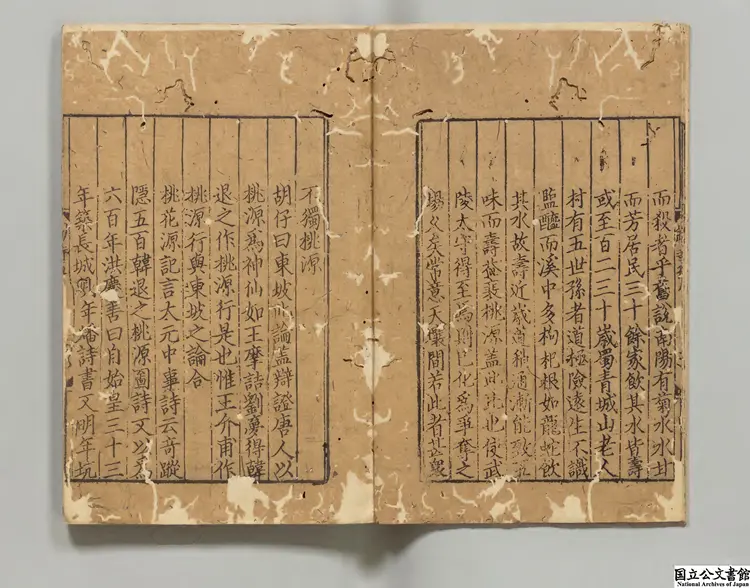 而殺者乎舊說南陽有菊水水甘
而芳居民三十餘家飲其水皆壽
或至百二三十歲蜀青城山老人
村有五世孫者道極險遠生不識
鹽醯而溪中多枸杞根如龍蛇飲
其水故壽近歲道稍通漸能致五
味而壽益衰桃源蓋此比也使武
陵太守得至焉則已化爲爭奪之
場久矣常意天壤間若此者甚衆
不獨桃源
胡仔曰東坡此論蓋辯證唐人以
桃源爲神仙如王摩詰劉夢得韓
退之作桃源行是也惟王介甫作
桃源行與東坡之論合
桃花源記言太元中事詩云奇蹤
隱五百韓退之桃源圖詩又以爲
六百年洪慶善曰自始皇三十三
年築長城明年燔詩書又明年坑
国立公文書館
National Archives of Japan